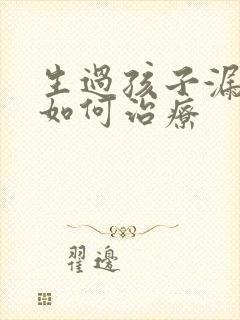 生過孩子漏
如何治療
翟邊